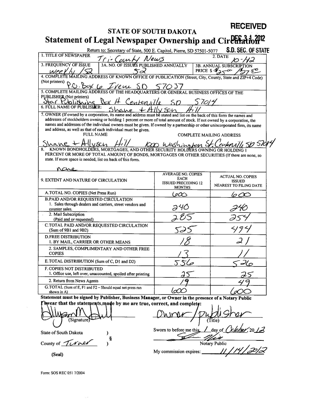 RECEIVED
STATE OF SOUTH DAKOTA
Statement of Legal Newspaper Ownership and Circulation
S.D. SEC. OF STATE
Return to: Secretary of State, 500 E. Capitol, Pierre, SD 57501-5077
1. TITLE OF NEWSPAPER
Tri-County News
2. DATE
10-1-12
3. FREQUENCY OF ISSUE
weekly
3A. NO. OF ISSUES PUBLISHED ANNUALLY
52
3B. ANNUAL SUBSCRIPTION
PRICE $
4. COMPLETE MAILING ADDRESS OF KNOWN OFFICE OF PUBLICATION (Street, City, County, State and ZIP+4 Code)
(Not printers)
PO Box 6 Irene SD 57037
5. COMPLETE MAILING ADDRESS OF THE HEADQUARTERS OR GENERAL BUSINESS OFFICES OF THE
PUBLISHER (Not printers)
Publishing Box H Centerville SD 57014
6. FULL NAME OF PUBLISHER
Shane & Allyson Hill
7. OWNER (If owned by a corporation, its name and address must be stated and list on the back of this form the names and
addresses of stockholders owning or holding 1 percent or more of total amount of stock. If not owned by a corporation, the
names and addresses of the individual owners must be given. If owned by a partnership or other unincorporated firm, its name
and address, as well as that of each individual must be given.
FULL NAME
COMPLETE MAILING ADDRESS
Shane & Allyson Hill
Washington St Centerville SD 57014
8. KNOWN BONDHOLDERS, MORTGAGEES, AND OTHER SECURITY HOLDERS OWNING OR HOLDING 1
PERCENT OR MORE OF TOTAL AMOUNT OF BONDS, MORTGAGES OR OTHER SECURITIES (If there are none, so
state. If more space is needed, list on back of this form.
none
9. EXTENT AND NATURE OF CIRCULATION
AVERAGE NO. COPIES
EACH
ISSUED PRECEDING 12
MONTHS
ACTUAL NO. COPIES
ISSUED
NEAREST TO FILING DATE
A. TOTAL NO. COPIES (Net Press Run)
600
600
B. PAID AND/OR REQUESTED CIRCULATION
1. Sales through dealers and carriers, street vendors and
counter sales
240
240
2. Mail Subscription
(Paid and or requested)
285
254
C. TOTAL PAID AND/OR REQUESTED CIRCULATION
(Sum of 9B1 and 9B2)
525
494
D. FREE DISTRIBUTION
1. BY MAIL, CARRIER OR OTHER MEANS
18
21
2. SAMPLES, COMPLIMENTARY AND OTHER FREE
COPIES
13
11
E. TOTAL DISTRIBUTION (Sum of C, D1 and D2)
556
526
F. COPIES NOT DISTRIBUTED
1. Office use, left over, unaccounted, spoiled after printing
25
25
2. Return from News Agents
19
49
G. TOTAL (Sum of E, F1 and F2 - Should equal net press run
shown in A)
600
600
Statement must be signed by Publisher, Business Manager, or Owner in the presence of a Notary Public
I swear that the statements made by me are true, correct, and complete:
Owner / publisher
(Signature)
(Title)
State of South Dakota )
§
County of Turner )
(Seal)
Sworn to before me this 1 day of October, 20 12
Notary Public
My commission expires:
Form: SOS REC 051 7/2004